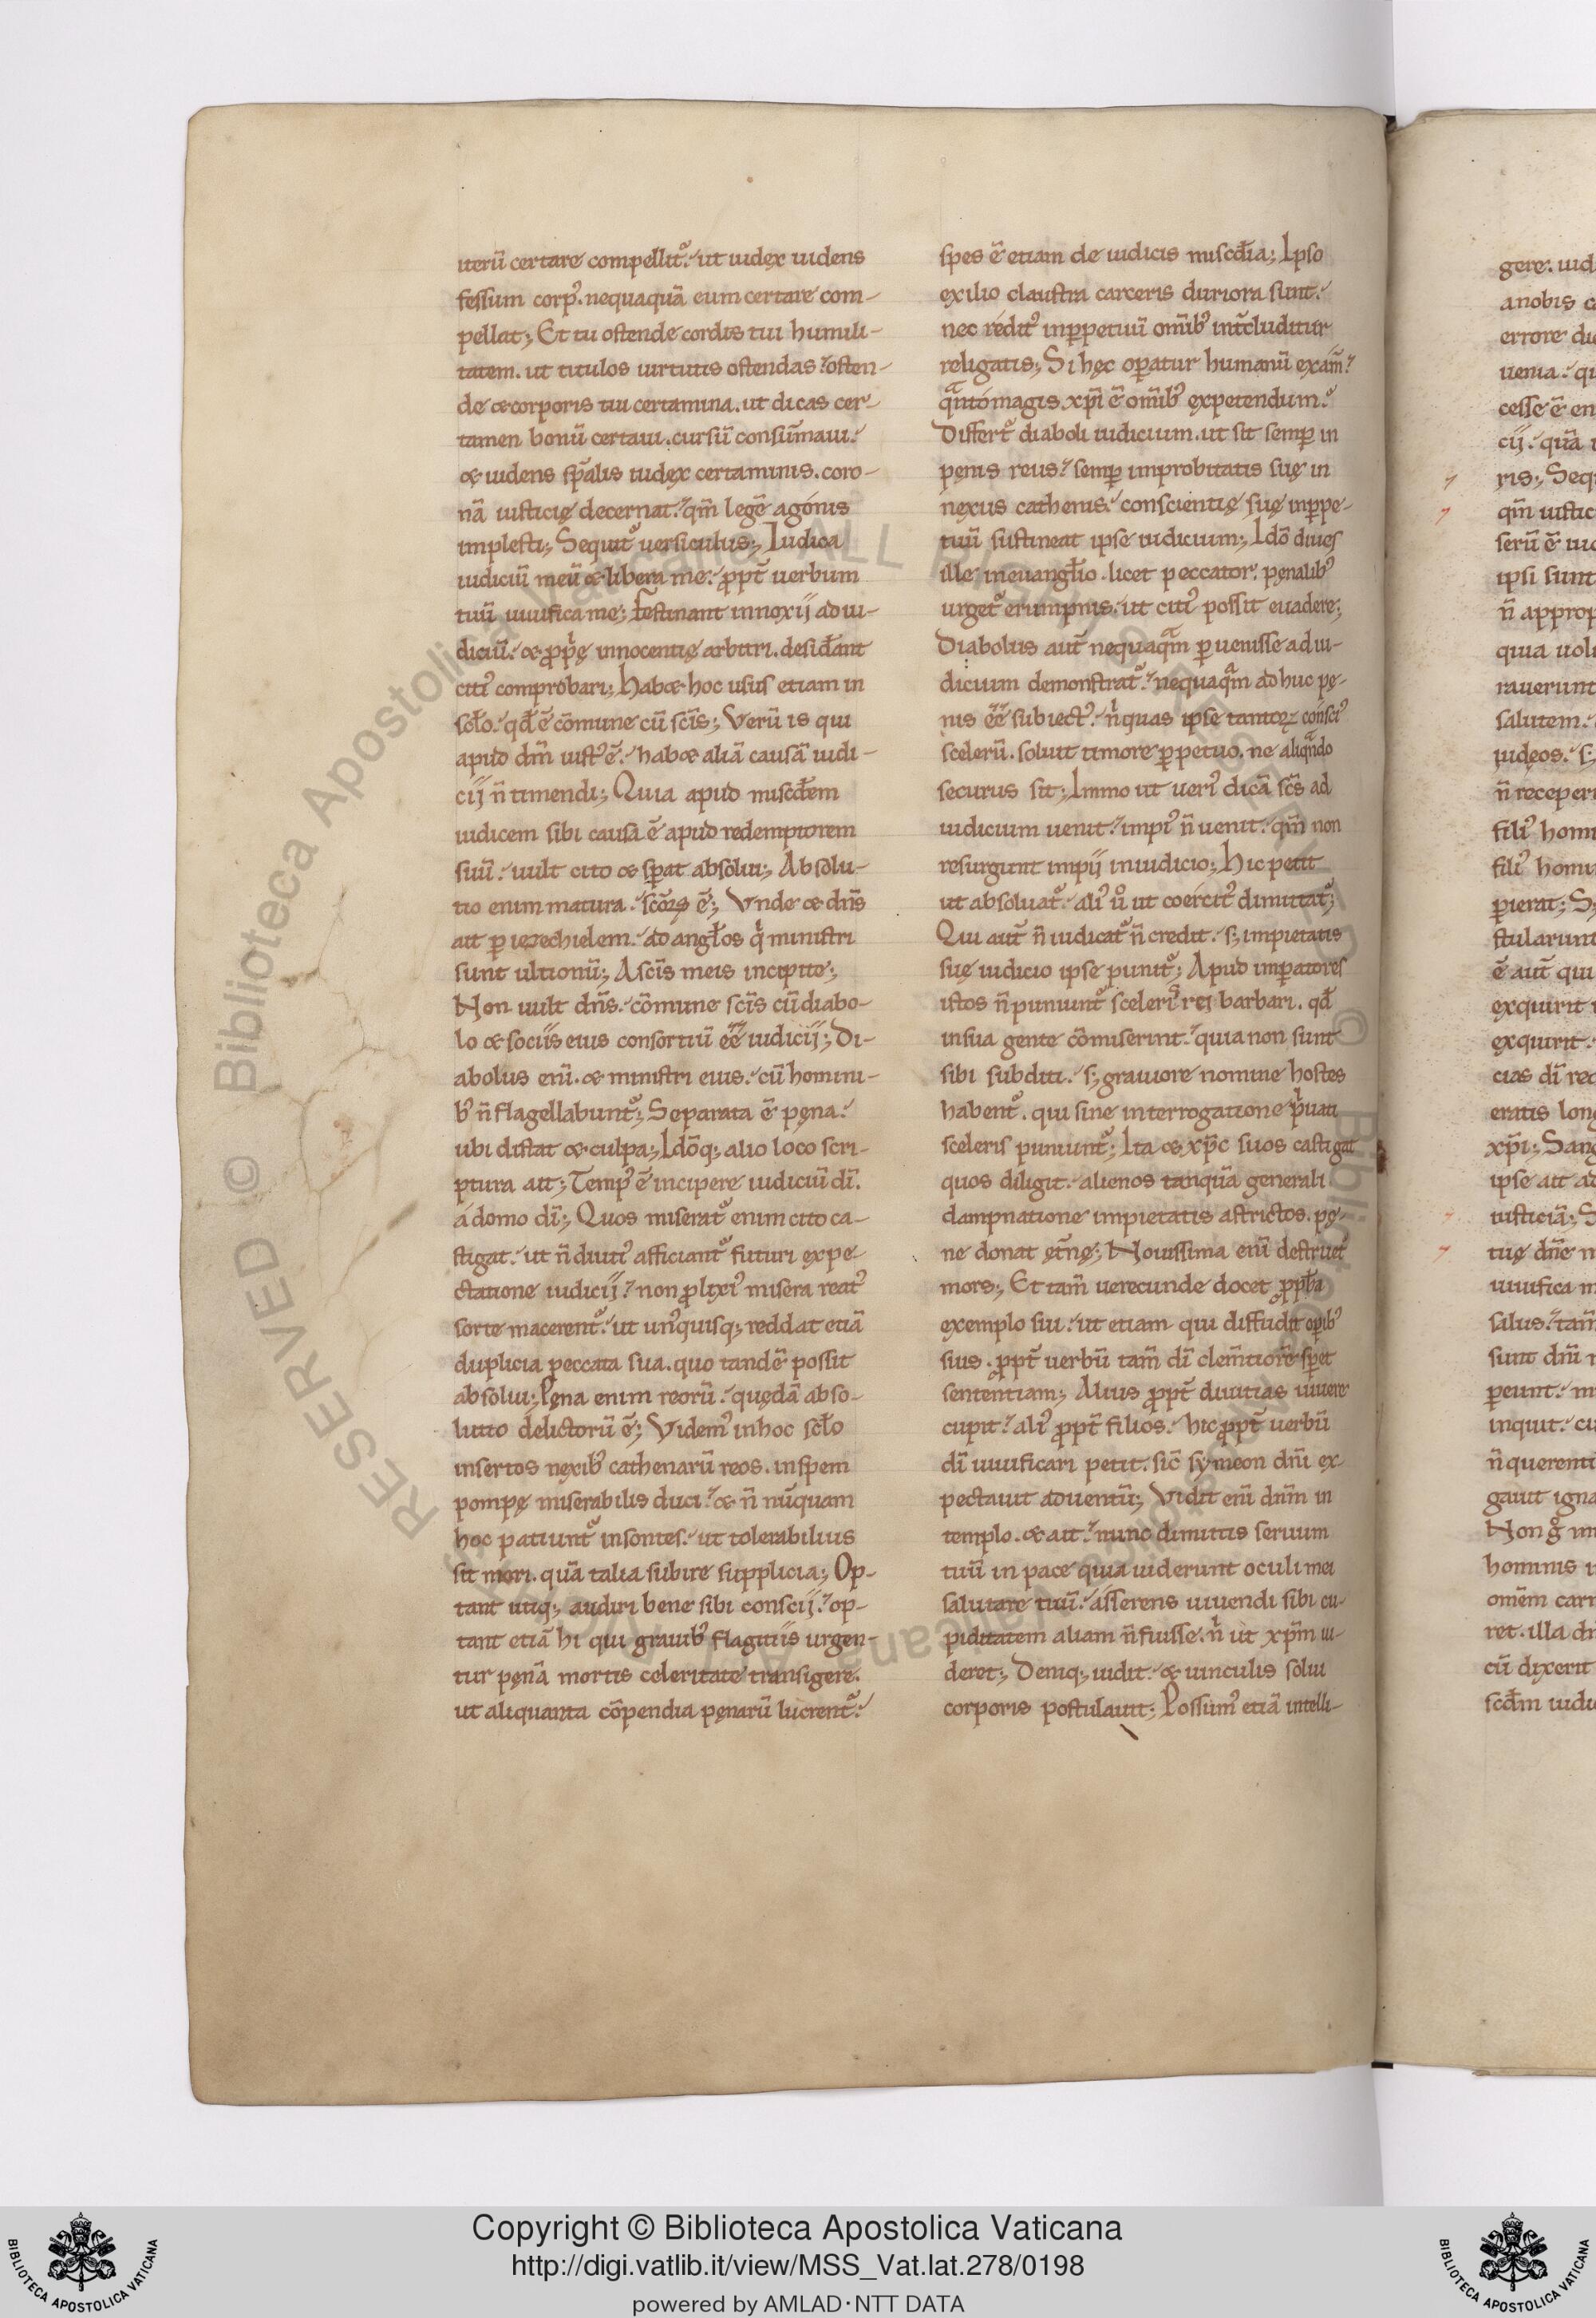 iterũ certare compellit᷒. ut iudex uidens
fessum corp᷒. nequaquã eum certare com-
pellat; Et tu ostende cordis tui humili-
tatem. ut titulos uirtutis ostendas. osten-
de & corporis tui certamina. ut dicas cer-
tamen bonũ certaui. cursũ consũmaui.
& uidens sp̃alis iudex certaminis. coro-
nã iusticię decernat. qm̃ legẽ agonis
implesti; Sequit᷒ uersiculus; Iudica
iudiciũ meũ & libera me. ꝓpt̃ uerbum
tuũ uiuifica me; Festinant innoxij ad iu-
diciũ. & ꝓp̃ę innocentię arbitri. desiđant
citi᷒ comprobari; Hab& hoc usus etiam in
scło. qđ ẽ cõmune cũ scĩs; Verũ is qui
apud dm̃ iust᷒ ẽ. hab& aliã causã iudi-
cij ñ timendi; Quia apud miscđem
iudicem sibi causa ẽ apud redemptorem
suũ. uult cito & sꝑat absolui; Absolu-
tio enim matura. scõꝝ ẽ; Vnde & dñs
ait ꝑ iezechielem. ad angłos q̇ ministri
sunt ultionũ; A scĩs meis incipite;
Non uult dñs. cõmune scĩs cũ diabo-
lo & sociis eius consortiũ ẽẽ iudicij; Di-
abolus enĩ. & ministri eius. cũ homini-
b᷒ ñ flagellabunt᷒; Separata ẽ pęna.
ubi distat & culpa; Idõq; alio loco scri-
ptura ait; Temp᷒ ẽ incipere iudiciũ dĩ.
á domo dĩ; Quos miserat᷒ enim cito ca-
stigat. ut ñ diuti᷒ afficiant᷒ futuri expe-
ctatione iudicij. non ꝓlixi᷒ misera reat᷒
sorte macerent᷒. ut un᷒quisq; reddat etiã
duplicia peccata sua. quo tandẽ possit
absolui; Pęna enim reorũ. quędã abso-
lutio delictorũ ẽ; Videm᷒ in hoc scło
insertos nexib᷒ cathenarũ reos. in spem
pompę miserabilis duci. & ñ nũquam
hoc patiunt᷒ insontes. ut tolerabilius
sit mori. quã talia subire supplicia; Op-
tant utiq; audiri bene sibi conscij. op-
tant etiã hi qui grauib᷒ flagitiis urgen-
tur pęnã mortis celeritate transigere.
ut aliquanta cõpendia pęnarũ lucrent᷒.
spes ẽ etiam de iudicis miscđia; Ipso
exilio claustra carceris duriora sunt.
nec redit᷒ inꝑpetuũ om̃ib᷒ int̃cluditur
religatis; Si hęc oꝑatur humanũ exam̃.
q̃nto magis xp̃i ẽ om̃ib᷒ expetendum.
Differt᷒ diaboli iudicium. ut sit semꝑ in
pęnis reus. semꝑ improbitatis suę in
nexus cathenis. conscientię suę inꝑpe-
tuũ sustineat ipse iudicium; Idõ diues
ille in euangłio. licet peccator. pęnalib᷒
urget᷒ erumpnis. ut citi᷒ possit euadere;
Diabolus aut̃ nequaq̃m ꝑuenisse ad iu-
dicium demonstrat᷒. nequaq̃m adhuc pę-
nis ẽẽ subiect᷒. ṅ quas ipse tantoꝝ consci᷒
scelerũ. soluit timore ꝑpetuo. ne aliq̃ndo
securus sit; Immo ut ueri᷒ dicã scs̃ ad
iudicium uenit. impi᷒ ñ uenit. qm̃ non
resurgunt impij in iudicio; Hic petit
ut absoluat᷒. ali᷒ ů ut coercit᷒ dimittat᷒;
Qui aut̃ ñ iudicat᷒ ñ credit. s; impietatis
suę iudicio ipse punit᷒; Apud imꝑatores
istos ñ puniunt᷒ sceleris rei barbari. qđ
in sua gente cõmiserint. quia non sunt
sibi subditi. s; grauiore nomine hostes
habent᷒. qui sine interrogatione ṗuati
sceleris puniunt᷒; Ita & xp̃c suos castigat
quos diligit. alienos tanquã generali
dampnatione impietatis astrictos. pę-
ne donat ęt̃nę; Nouissima enĩ destruet᷒
mors; Et tam̃ uerecunde docet ꝓpħa
exemplo sui. ut etiam qui diffidit oꝑib᷒
suis. ꝓpt̃ uerbũ tam̃ dĩ clem̃tiorẽ sꝑet
sententiam; Alius ꝓpt̃ diuitias uiuere
cupit. ali᷒ ꝓpt̃ filios. hic ꝓpt̃ uerbũ
dĩ uiuificari petit. sic̃ symeon dnĩ ex-
pectauit aduentũ; Vidit enĩ dnm̃ in
templo. & ait. nunc dimittis seruum
tuũ in pace quia uiderunt oculi mei
salutare tuũ. asserens uiuendi sibi cu-
piditatem aliam ñ fuisse. ṅ ut xp̃m ui-
deret; Deniq; uidit. & uinculis solui
corporis postulauit; Possum᷒ etiã intelli-
gere. iud
a nobis c
errore di
uenia. qu
cesse ẽ en
cij. quã
ris; Seq
qm̃ iustic
serũ ẽ iuc
ipsi sunt
ñ approp
quia uol
rauerunt
salutem.
iudeos. s;
ñ receper
fili᷒ homi
fili᷒ homi
ꝑierat; S
stularunt
ẽ aut̃ qui
exquirit
exquirit.
cias dĩ rec
eratis long
xp̃i; Sang
ipse ait ad
iusticiã; S
tuę dñe m
uiuifica m
salus. tam̃
sunt dnĩ
pereunt. m
inquit. cu
ñ querenti
gauit igna
Non g̊ mi
hominis
omẽm car
ret. illa dñ
cũ dixerit
scđm iudi
Copyright © Biblioteca Apostolica Vaticana
http://digi.vatlib.it/view/MSS_Vat.lat.278/0198
powered by AMLAD·NTT DATA
BIBLIOTECA APOSTOLICA VATICANA
BIBLIOTECA APOSTOLICA VATICANA